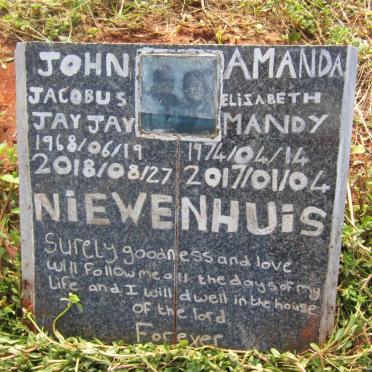 JOHN AMANDA
JACOBUS ELIZABETH
JAYJAY MANDY
1968/06/19 1974/04/14
2018/08/27 2017/01/04
NIEWENHUIS
Surely goodness and love
will follow me all the days of my
life and I will dwell in the house
of the lord
Forever